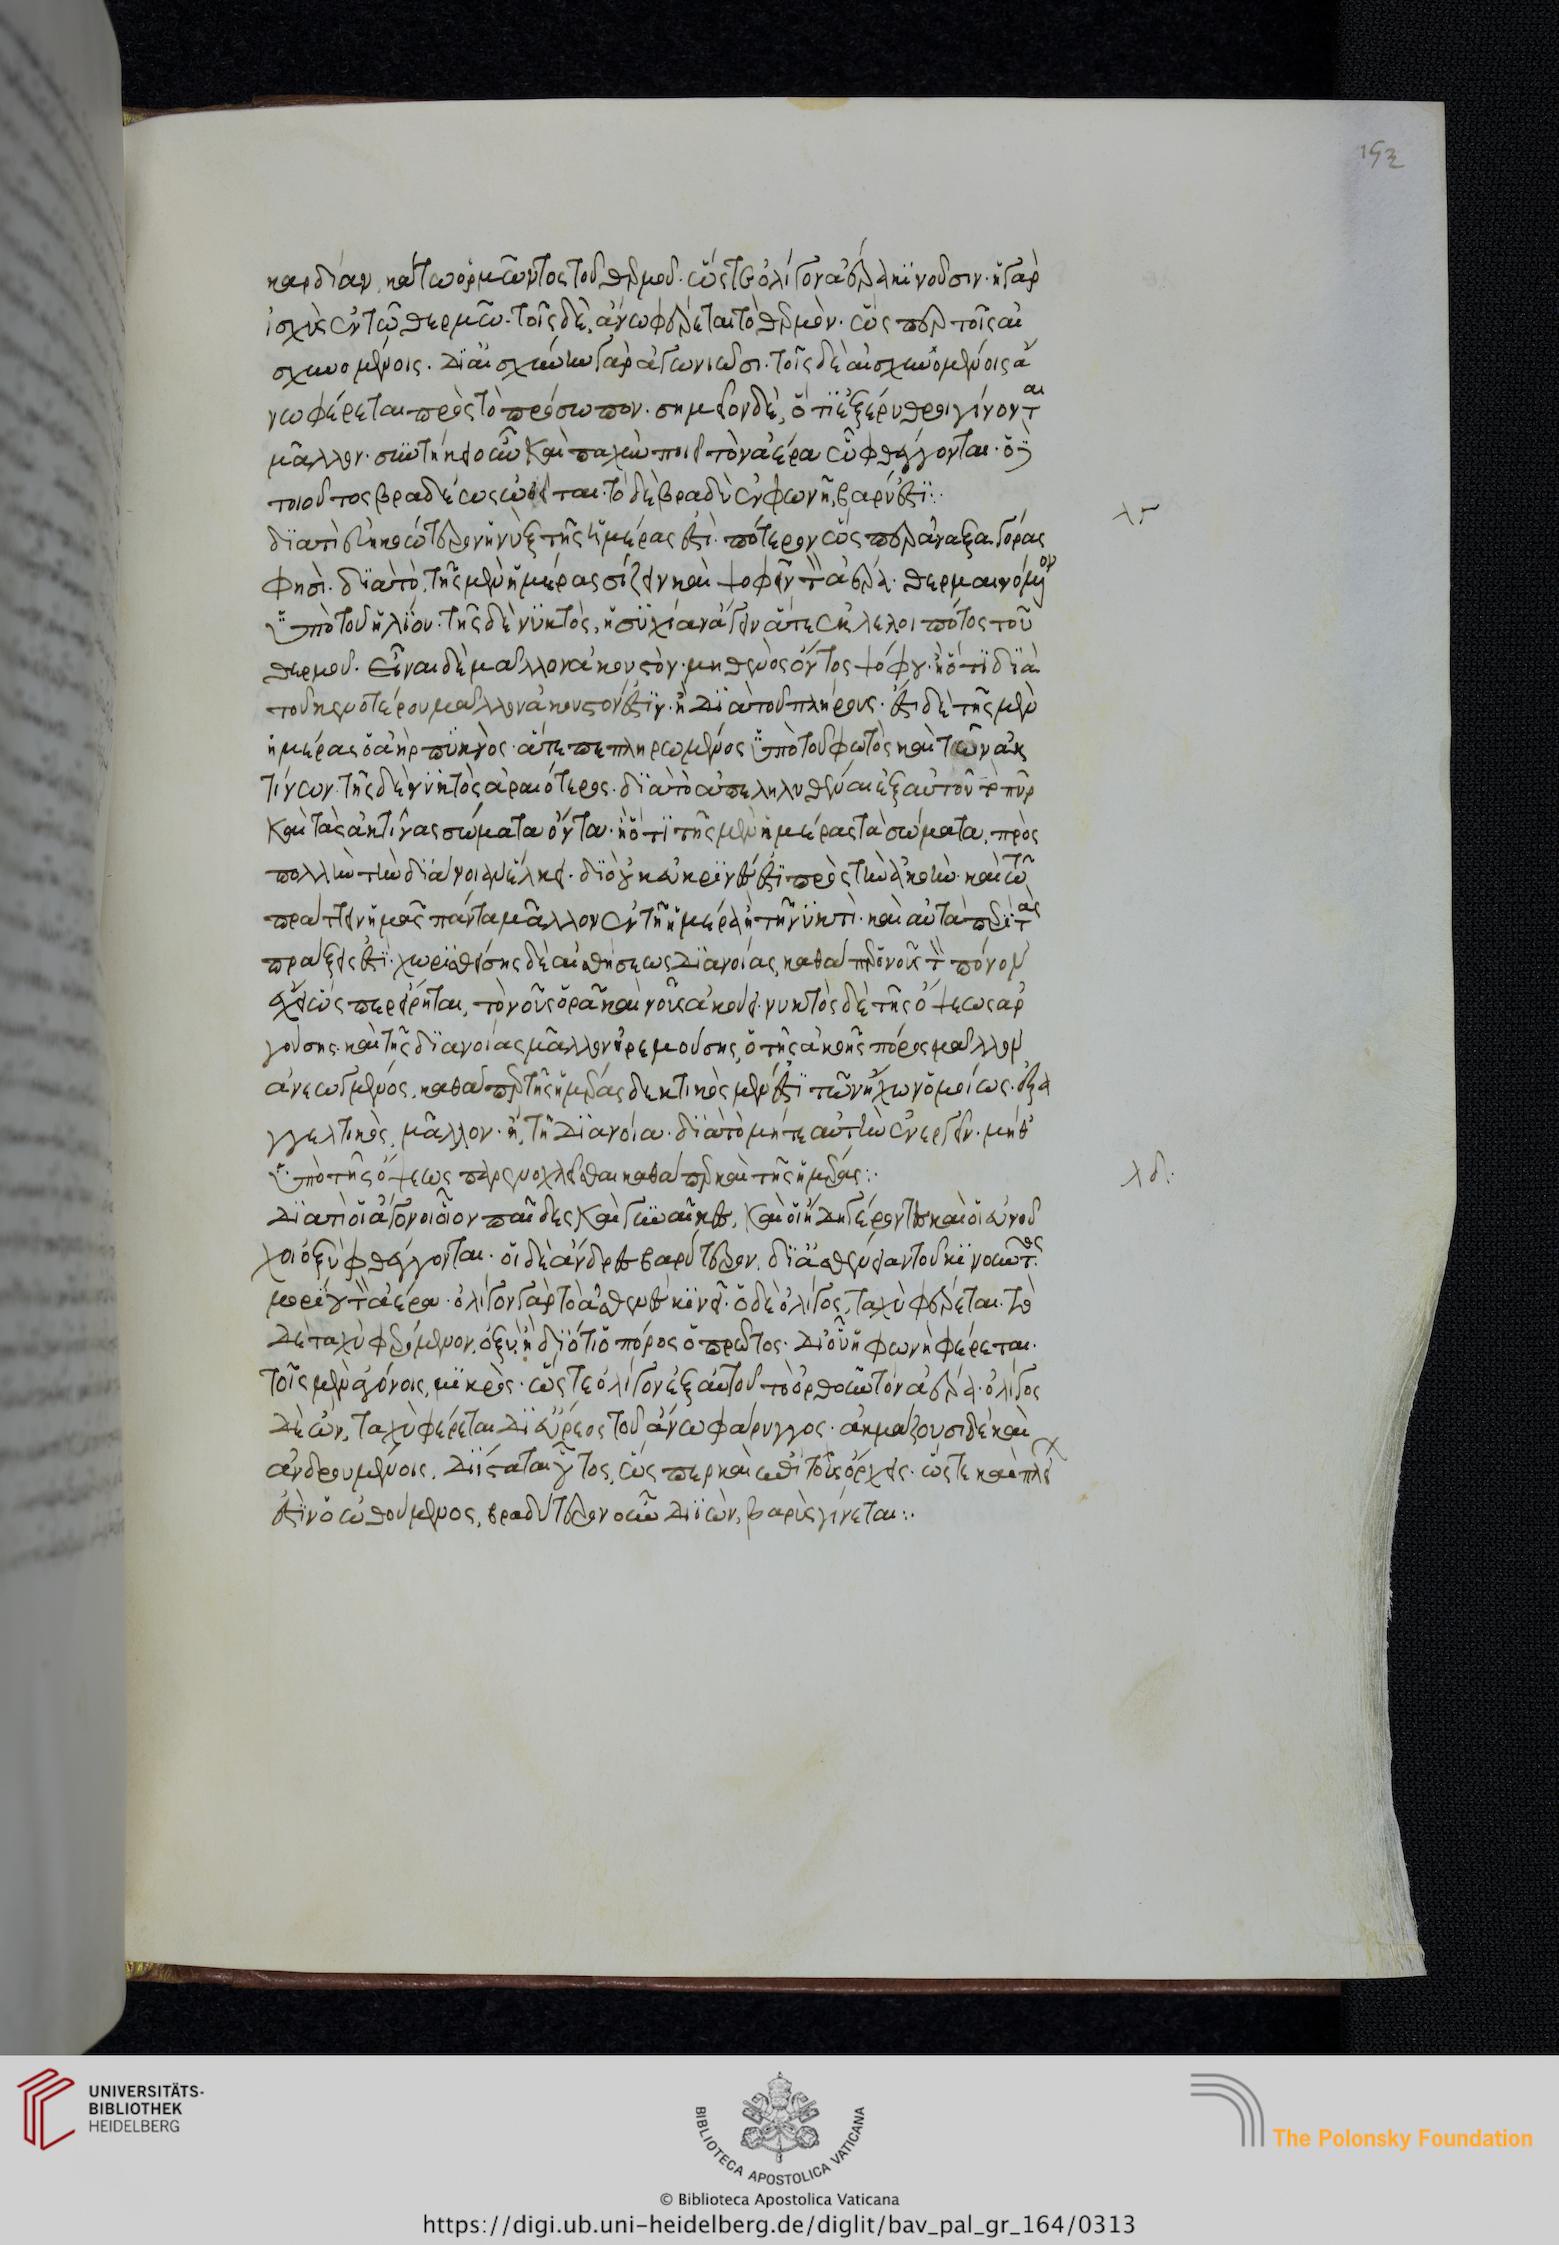 153
καρδίαν κάτω ὁρμῶντος τοῦ θερμοῦ. ὥστε ὀλίγον ἀέρα κινοῦσιν. ἡ γὰρ
ἰσχὺς ἐν τῷ θερμῷ. τοῖς δὲ, ἄνω φέρεται τὸ θερμὸν. ὥσπερ τοῖς αἰ
σχυνομένοις. δι' αἰσχύνην γὰρ ἀγωνιῶσι. τοῖς δὲ αἰσχυνομένοις ἄ
νω φέρεται πρὸς τὸ πρόσωπον. σημεῖον δὲ, ὅτι ἐξέρυθροι γίνονται
μᾶλλον. συντήκει οὖν καὶ παχὺν ποιεῖ τὸν ἀέρα ᾧ φθέγγονται. ὁ δὲ
τοιοῦτος βραδέως ὠθεῖται. τὸ δὲ βραδὺ ἐν φωνῇ, βαρύ ἐστι:.
λγ
διατί εὐηκοώτερον ἡ νὺξ τῆς ἡμέρας ἐστί. πότερον ὥσπερ ἀναξαγόρας
φησὶ. διὰ τὸ, τῆς μὲν ἡμέρας σίζειν καὶ ψοφεῖν τὸν ἀέρα. θερμαινόμενον
ὑπὸ τοῦ ἡλίου. τῆς δὲ νυκτὸς, ἡσυχίαν ἄγειν ἅτε ἐκλελοιπότος τοῦ
θερμοῦ. εἶναι δὲ μᾶλλον ἀκουστὸν. μηθενὸς ὄντος ψόφου. ἢ ὅτι διὰ
τοῦ κενοτέρου μᾶλλον ἀκουστόν ἐστιν. ἢ διὰ τοῦ πλήρους. ἔστι δὲ τῆς μὲν
ἡμέρας ὁ ἀὴρ πυκνὸς. ἅτε πεπληρωμένος ὑπὸ τοῦ φωτὸς καὶ τῶν ἀκ
τίνων. τῆς δὲ νυκτὸς ἀραιότερος. διὰ τὸ ἀπεληλυθέναι ἐξ αὐτοῦ τὸ πῦρ
καὶ τὰς ἀκτῖνας σώματα ὄντα. ἢ ὅτι τῆς μὲν ἡμέρας τὰ σώματα, πρὸς
πολλὴν τὴν διάνοιαν ἕλκει. διὸ οὐκ εὐκρινής ἐστι πρὸς τὴν ἀκοὴν. καὶ τῷ
πράττειν ἡμᾶς πάντα μᾶλλον ἐν τῇ ἡμέρᾳ ἢ τῇ νυκτὶ. καὶ αὐτὴ περὶ τὰς
πράξεις ἐστί. χωρισθείσης δὲ αἰσθήσεως διανοίας, καθάπερ
ὥσπερ εἴρηται, τὸ νοῦς ὁρᾷ καὶ νοῦς ἀκούει. νυκτὸς δὲ τῆς ὄψεως ἀρ
γούσης. καὶ τῆς διανοίας μᾶλλον ἠρεμούσης, ὁ τῆς ἀκοῆς πόρος μᾶλλον
ἀνεῳγμένος, καθάπερ τῆς ἡμέρας δεκτικὸς μέν ἐστι τῶν ἤχων ὁμοίως. ἐξα
γγελτικὸς, μᾶλλον. ἢ, τῇ διανοίᾳ. διὰ τὸ μήτε αὐτὴν ἐνεργεῖν. μήθ'
ὑπὸ τῆς ὄψεως παρενοχλεῖσθαι καθάπερ καὶ τῆς ἡμέρας:.
λδ.
διατί οἱ ἄγονοι οἷον παῖδες καὶ γυναῖκες, καὶ οἱ ἤδη γέροντες καὶ οἱ εὐνοῦ
χοι ὀξὺ φθέγγονται. οἱ δὲ ἄνδρες βαρύτερον. δι' ἀσθένειαν τοῦ κινοῦντος
μορίου τὸν ἀέρα. ὀλίγον γὰρ τὸ ἀσθενὲς κινεῖ. ὁ δὲ ὀλίγος, ταχὺ φέρεται. τὸ
δὲ ταχὺ φερόμενον, ὀξὺ. ἢ διότι ὁ πόρος ὁ πρῶτος. δι' οὗ ἡ φωνὴ φέρεται.
τοῖς μὲν ἀγόνοις, μικρὸς. ὥστε ὀλίγον ἐξ αὐτοῦ τὸ ὠθοῦν τὸν ἀέρα. ὀλίγος
δὲ ὢν, ταχὺ φέρεται δι' εὐρέος τοῦ ἄνω φάρυγγος. ἀκμάζουσι δὲ καὶ
ἀνδρουμένοις, διίσταται οὗτος, ὥσπερ καὶ ἐπὶ τοὺς ὄρχεις. ὥστε καὶ πλεί
ἐστιν ὁ ὠθούμενος, βραδύτερον οὖν διϊὼν, βαρὺς γίνεται:.
UNIVERSITÄTS-
BIBLIOTHEK
HEIDELBERG
BIBLIOTECA APOSTOLICA VATICANA
The Polonsky Foundation
© Biblioteca Apostolica Vaticana
https://digi.ub.uni-heidelberg.de/diglit/bav_pal_gr_164/0313